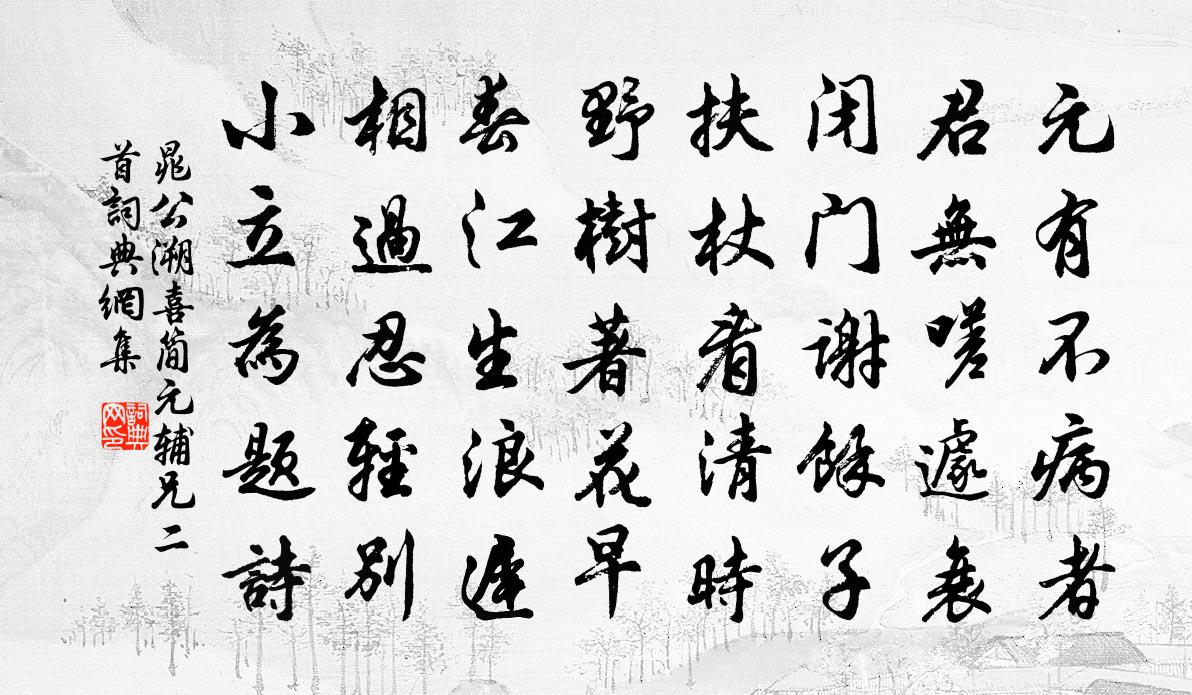 元有不病者
君無嗟遽衰
闭门謝餘子
扶杖看清時
野樹著花早
春江生浪遲
相過忍輕別
小立為題詩
晁公溯喜简元辅兄二
首詞典網集
詞典
网印